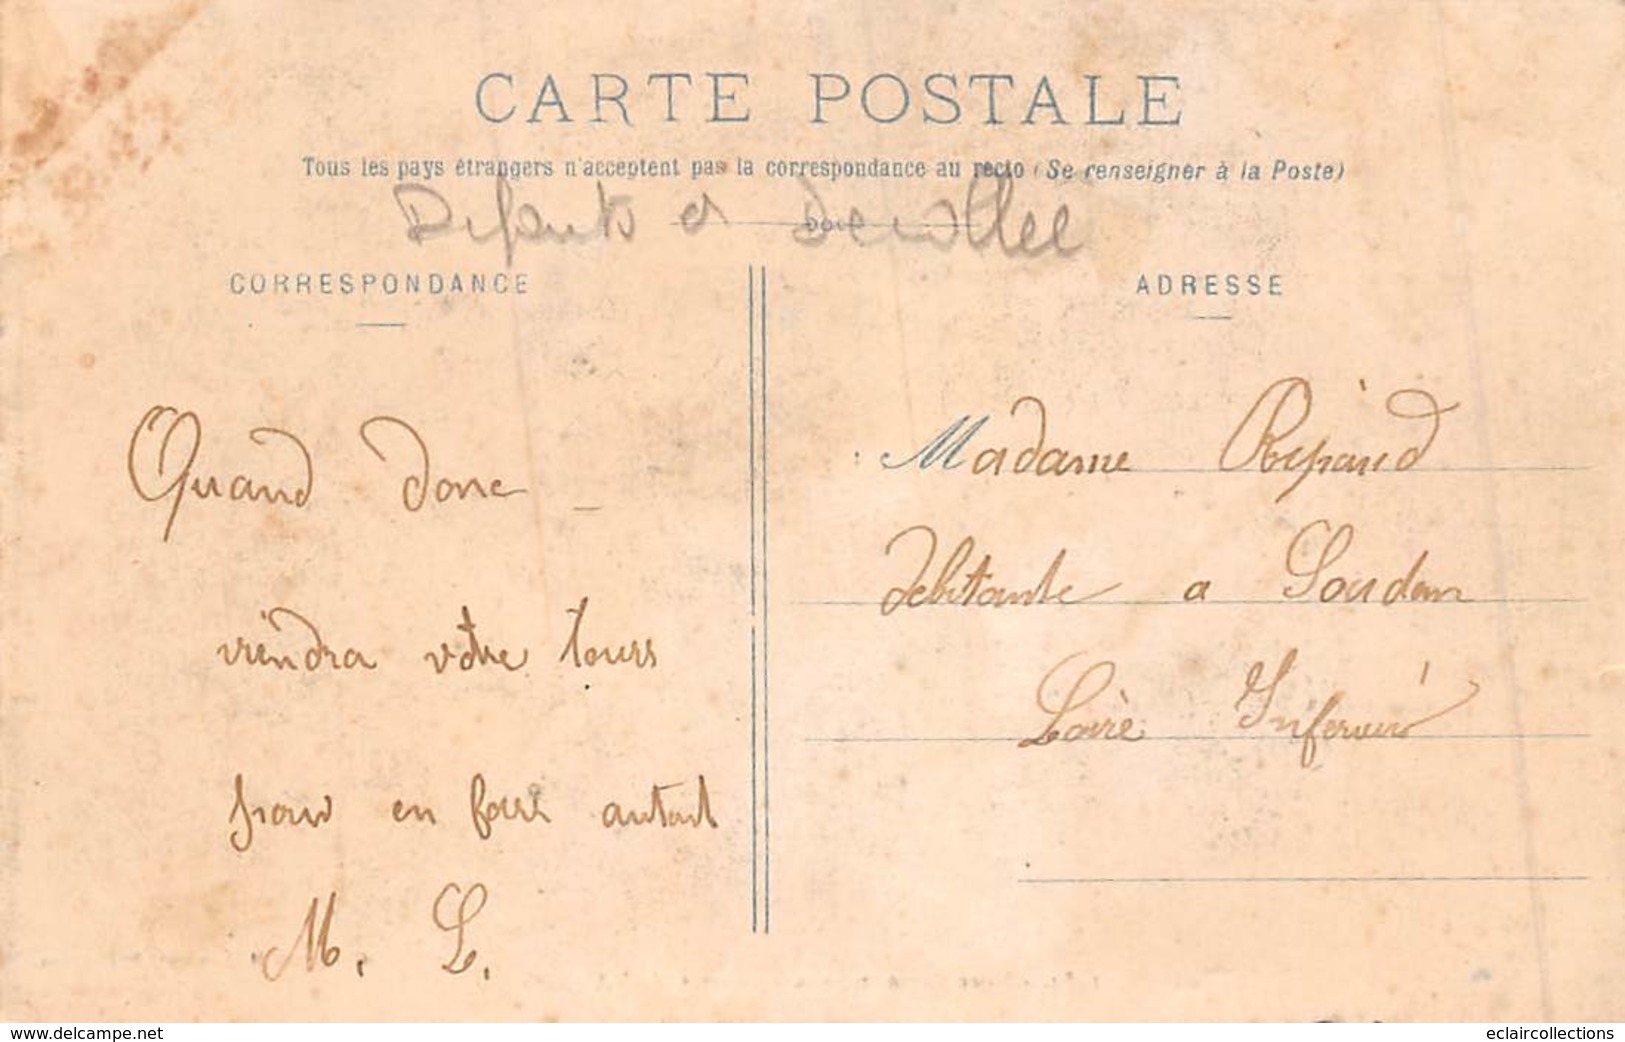 CARTE POSTALE
Tous les pays étrangers n'acceptent pas la correspondance au recto (Se renseigner à la Poste)
Défauts et Décollée
CORRESPONDANCE
ADRESSE
Quand donc
viendra votre tours
pour en faire autant
M. L.
Madame
débitante a Soudan
Loire Inférieur
www.delcampe.net
eclaircollections